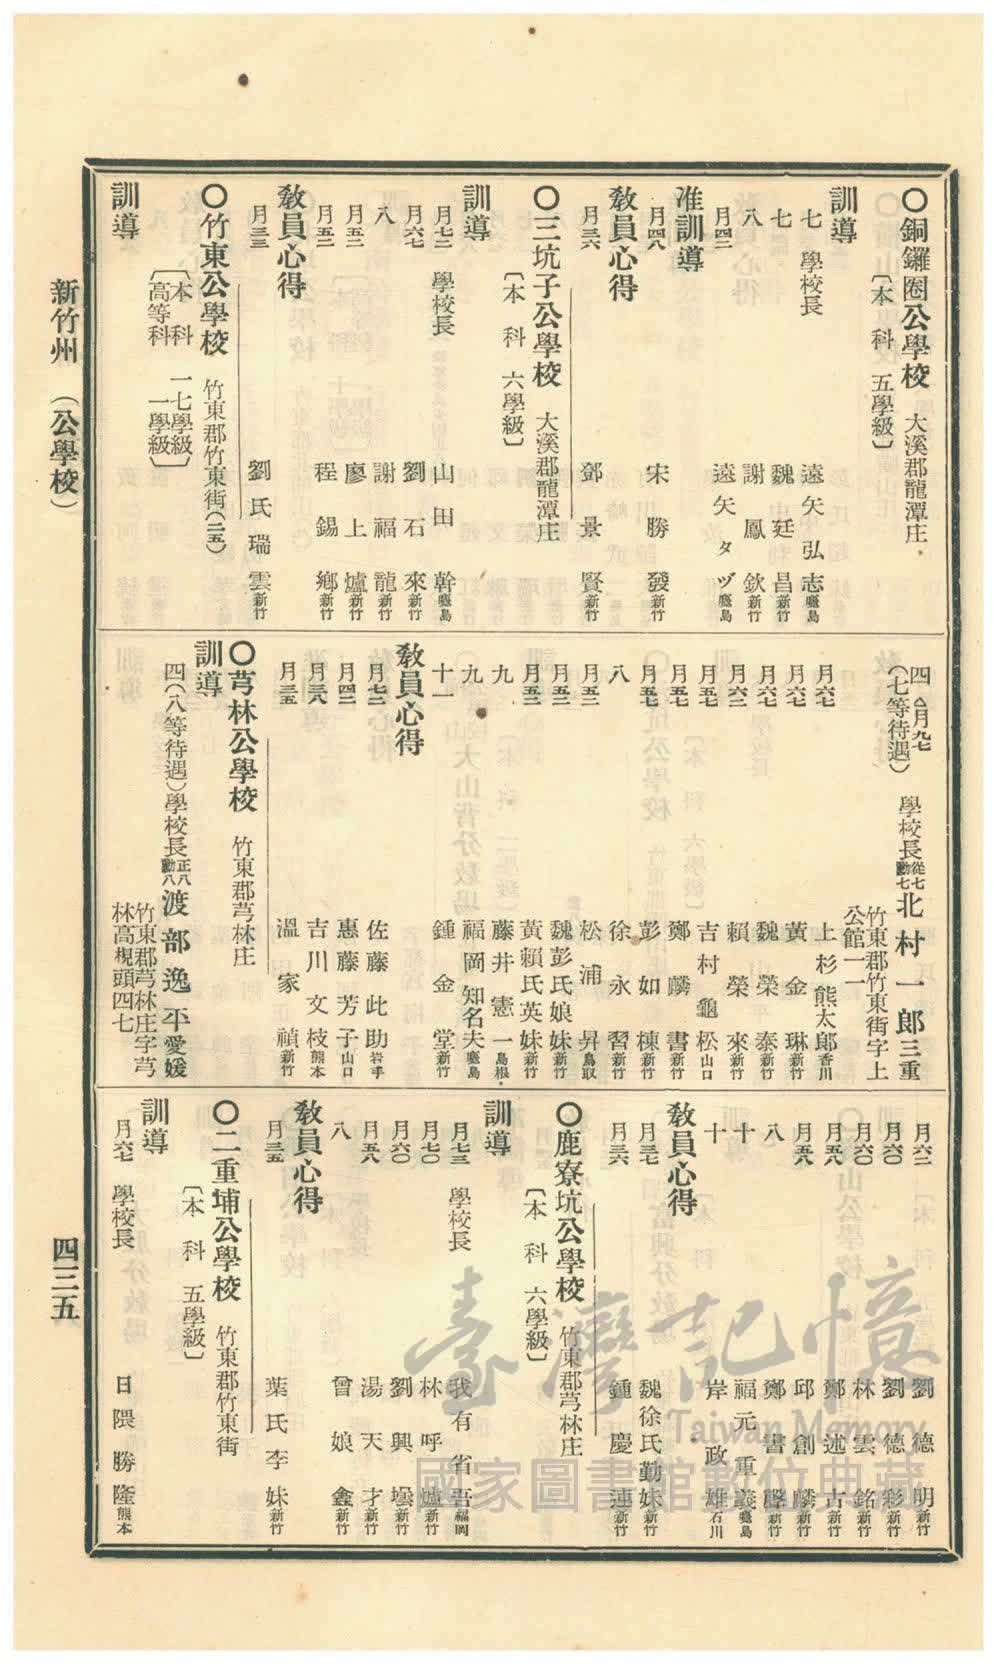 ○銅鑼圈公學校 大溪郡龍潭庄
〔本科 五學級〕
訓導
七 學校長 遠矢弘志 鹿兒島
七 魏廷昌 新竹
八 謝鳳欽 新竹
月四二 遠矢タヅ 鹿兒島
准訓導
月四八 宋勝發 新竹
教員心得
月三六 鄧景賢 新竹
○三坑子公學校 大溪郡龍潭庄
〔本科 六學級〕
訓導
月七二 學校長 山田幹 鹿兒島
月六七 劉石來 新竹
八 謝福龍 新竹
月五二 廖上爐 新竹
月五二 程錫鄉 新竹
教員心得
月三三 劉氏瑞雲 新竹
○竹東公學校 竹東郡竹東街(二五)
〔本科 一七學級〕
〔高等科 一學級〕
訓導
四 △月九七 學校長 從七 勳七 北村一郎 三重
(七等待遇) 竹東郡竹東街字上
公館一一
月六七 上杉熊太郎 香川
月六七 黃金琳 新竹
月六七 魏榮泰 新竹
月六二 賴榮來 新竹
月五七 吉村龜松 山口
月五七 鄭麟書 新竹
月五七 彭如棟 新竹
八 徐永習 新竹
月五二 松浦昇 鳥取
月五二 魏彭氏娘妹 新竹
月五二 黃賴氏英妹 新竹
九 藤井憲一 島根
九 福岡知名夫 鹿兒島
十一 鍾金堂 新竹
教員心得
月七二 佐藤此助 岩手
月四二 惠藤芳子 山口
月三八 吉川文枝 熊本
月三五 溫家禎 新竹
○芎林公學校 竹東郡芎林庄
訓導
四(八等待遇)學校長 正八 勳八 渡部逸平 愛媛
竹東郡芎林庄字芎
林高梘頭四七
月六二 劉德明 新竹
月六〇 劉德彩 新竹
月六〇 林雲銘 新竹
月五八 鄭述古 新竹
月五八 邱創麟 新竹
八 鄭書聲 新竹
十 福元重義 鹿兒島
十 岸政雄 石川
教員心得
月三七 魏徐氏勤妹 新竹
月三六 鍾慶連 新竹
○鹿寮坑公學校 竹東郡芎林庄
〔本科 六學級〕
訓導
月七三 學校長 我有省吾 福岡
月七〇 林呼爐 新竹
月六〇 劉興壜 新竹
月五八 湯天才 新竹
八 曾娘鑫 新竹
教員心得
月三五 葉氏李妹 新竹
○二重埔公學校 竹東郡竹東街
〔本科 五學級〕
訓導
月六七 學校長 日隈勝隆 熊本
新竹州 (公學校)
四三五
臺灣記憶
Taiwan Memory
國家圖書館數位典藏